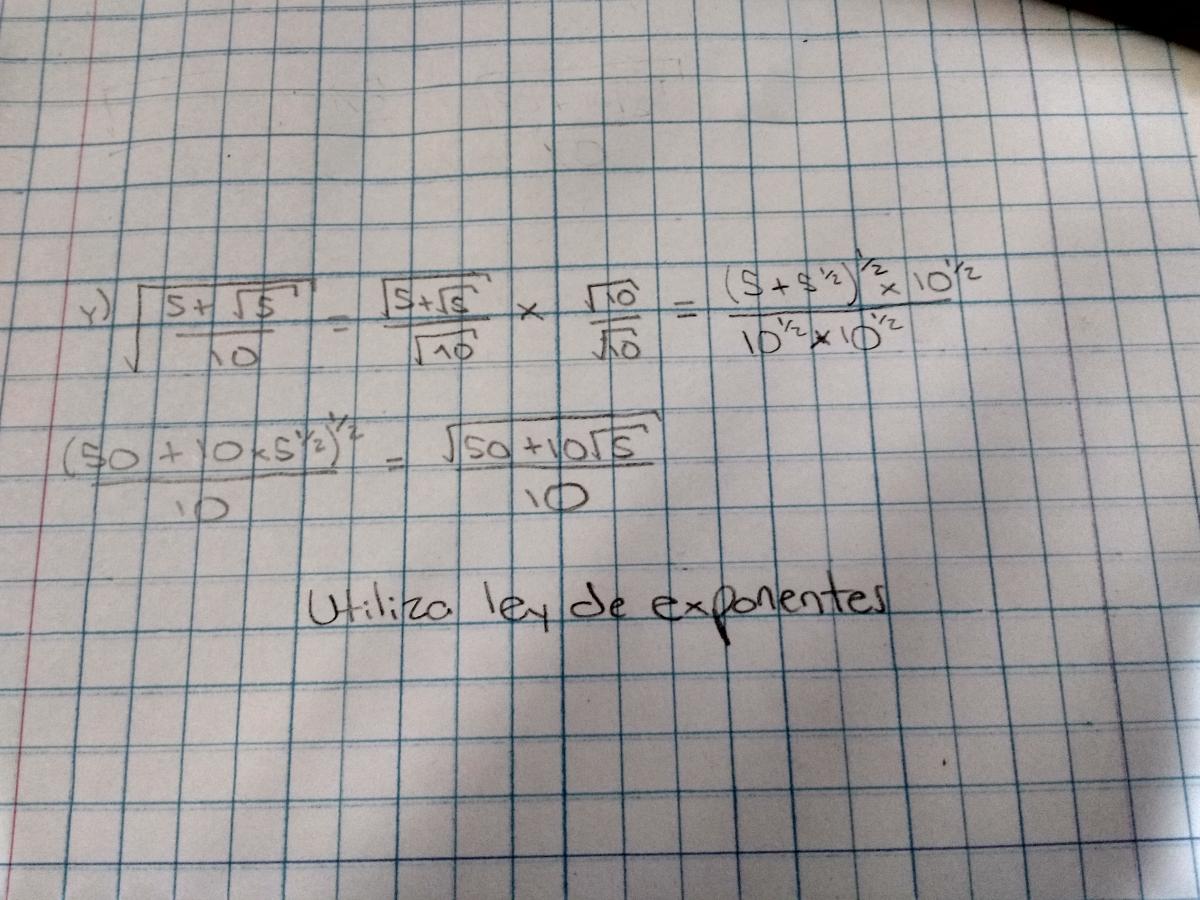 r) √((5+√5)/10) = √(5+√5)/√10 × √10/√10 = ((5+5^½)^½ × 10^½)/(10^½ × 10^½)
(50+10×5^½)^½/10 = √(50+10√5)/10
Utiliza ley de exponentes